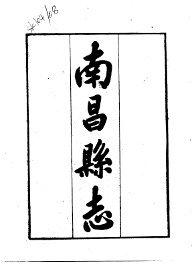 南昌縣志